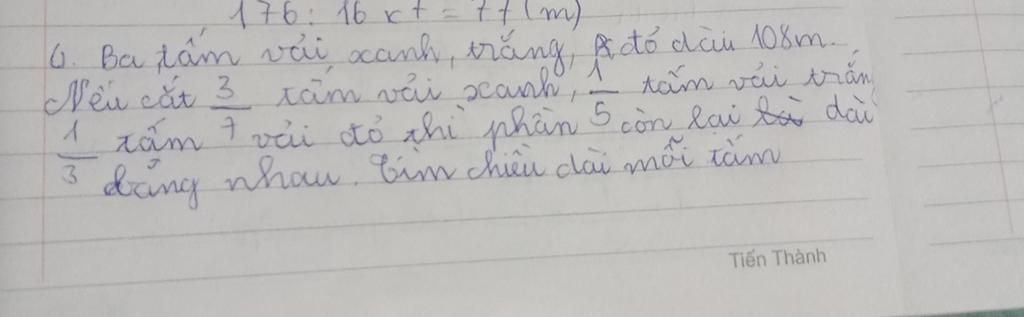 176 : 16 x 7 = 77 (m)
6. Ba tấm vải xanh, trắng, đỏ dài 108m.
Nếu cắt 3/7 tấm vải xanh, 1/5 tấm vải trắn
1/3 tấm vải đỏ thì phần còn lại dài
bằng nhau. Tìm chiều dài mỗi tấm
Tiến Thành